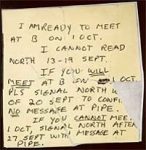 I AM READY TO MEET
AT B ON 1 OCT.
I CANNOT READ
NORTH 13-19 SEPT.
IF YOU WILL
MEET AT B ON 1 OCT.
PLS SIGNAL NORTH
OF 20 SEPT TO CONFI
NO MESSAGE AT PIPE.
IF YOU CANNOT MEE
1 OCT, SIGNAL NORTH AFTER
27 SEPT WITH MESSAGE AT
PIPE.